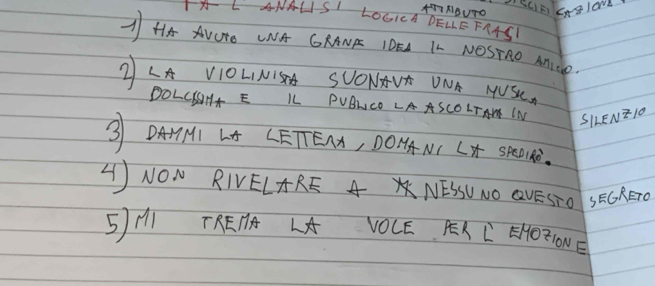 ATTRIBUTO
FA L'ANALISI LOGICA DELLE FRASI
1) HA AVUTO UNA GRANDE IDEA IL NOSTRO AMICO.
2) LA VIOLINISTA SUONAVA UNA MUSICA
DOLCISSIMA E IL PUBBLICO LA ASCOLTAVA IN SILENZIO
3) DAMMI LA LETTERA, DOMANI LA SPEDIRÒ.
4) NON RIVELARE A NESSUNO QUESTO SEGRETO
5) MI TREMA LA VOCE PER L'EMOZIONE